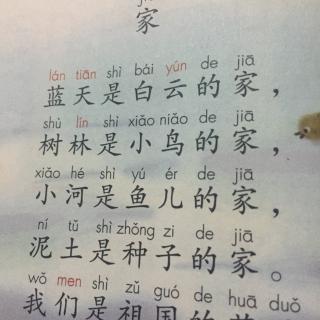 家
lán tiān shì bái yún de jiā
蓝天是白云的家，
shù lín shì xiǎo niǎo de jiā
树林是小鸟的家，
xiǎo hé shì yú ér de jiā
小河是鱼儿的家，
ní tǔ shì zhǒng zi de jiā
泥土是种子的家。
wǒ men shì zǔ guó de huā duǒ
我们是祖国的